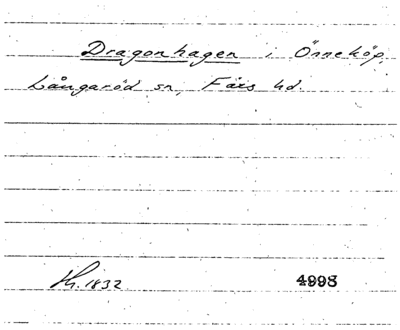 Dragonhagen i Önneköp,
Långaröd sn, Färs hd.
Th. 1832 4998